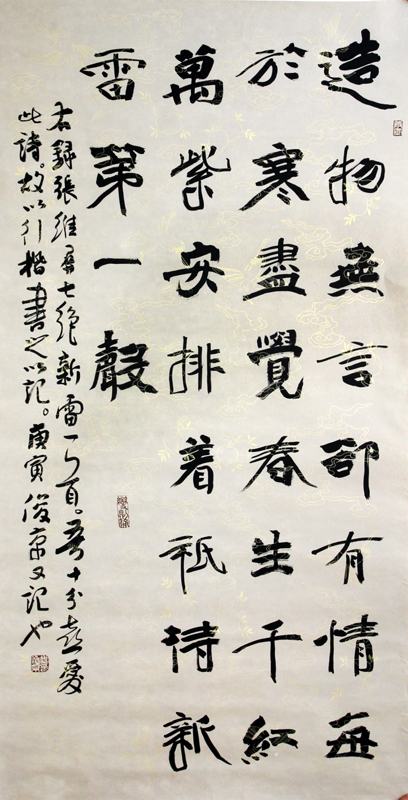 造物無言卻有情每
於寒盡覺春生千紅
萬紫安排着祇待新
雷第一聲
右錄張維屏七絕新雷一首。吾十分喜愛
此詩。故以行楷書之以記。庚寅俊京又記也